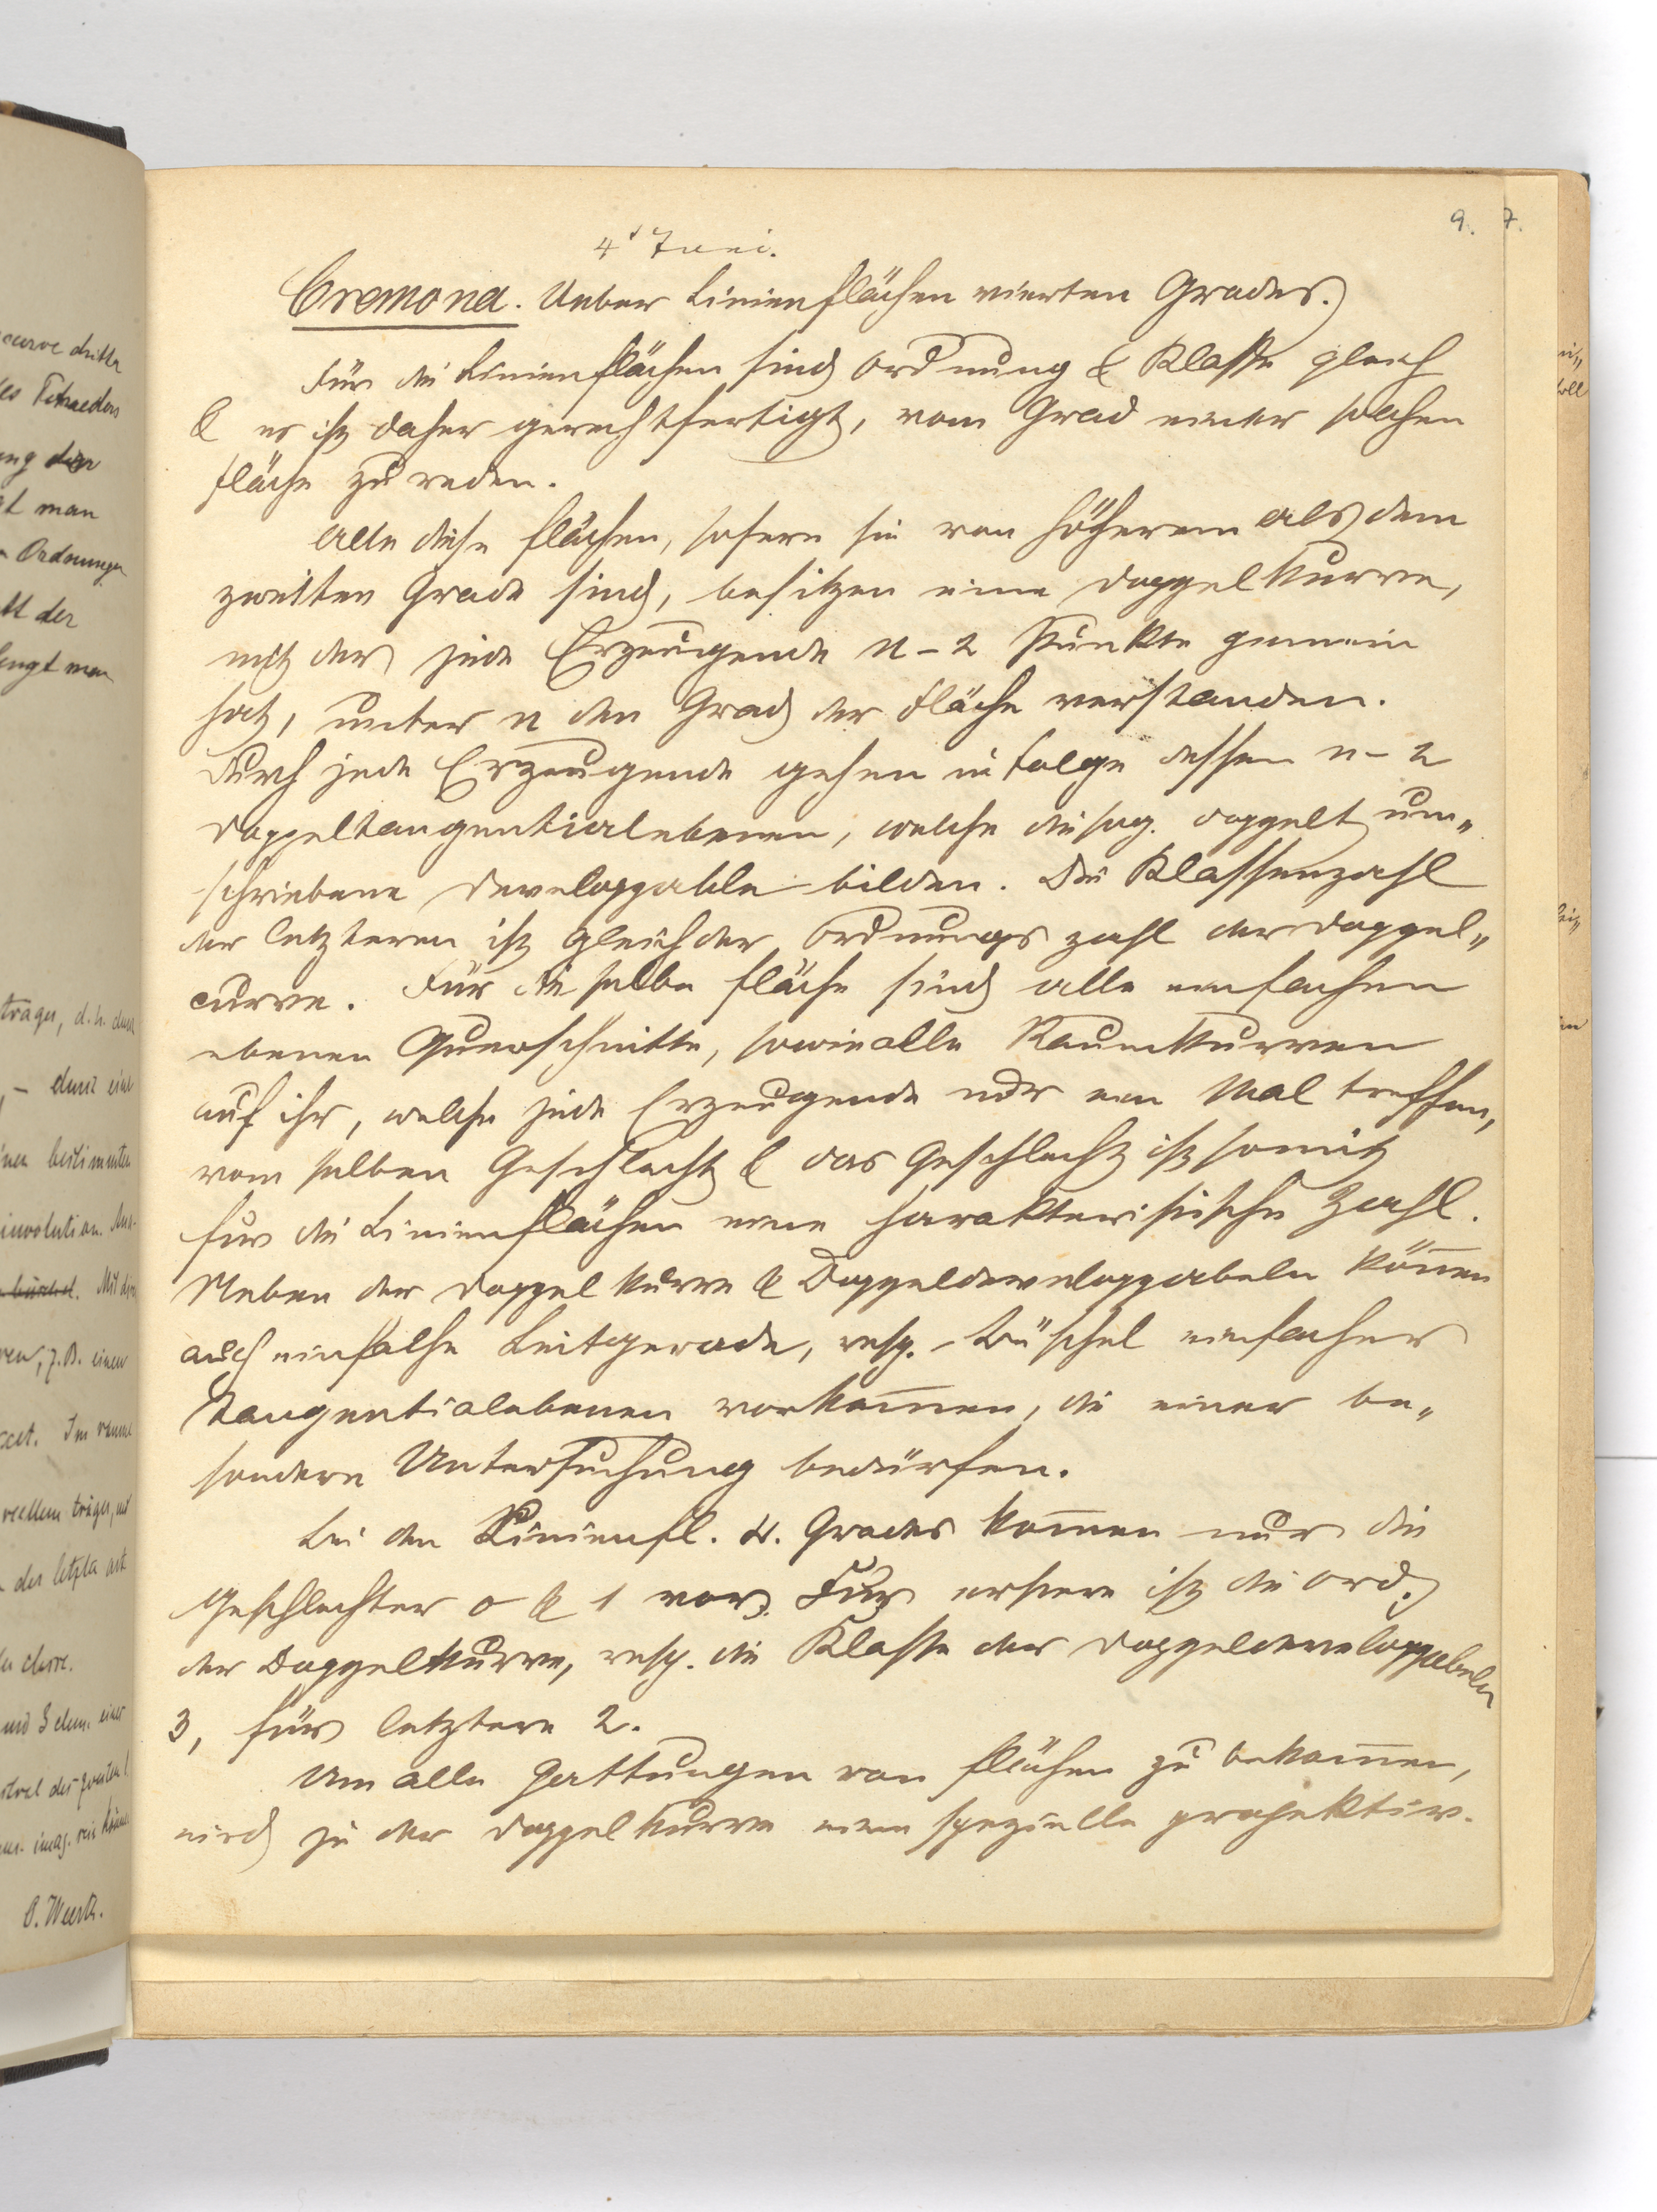 9. 7.
4' Juni.
Cremona. Ueber Linienflächen vierten Grades.
Für die Linienflächen sind Ordnung & Klasse gleich
& es ist daher gerechtfertigt, vom Grad einer solchen
Fläche zu reden.
Alle diese Flächen, sofern sie von höherem als dem
zweiten Grade sind, besitzen eine Doppelkurve,
mit der jede Erzeugende n-2 Punkte gemein
hat, unter n den Grad der Fläche verstanden.
Durch jede Erzeugende gehen in Folge dessen n-2
Doppeltangentialebenen, welche die sog. doppelt um„
schriebene Developpable bilden. Die Klassenzahl
der letzteren ist gleich der Ordnungszahl der Doppel„
curve. Für dieselbe Fläche sind alle einfachen
ebenen Querschnitte, sowie alle Raumkurven
auf ihr, welche jede Erzeugende nur ein Mal treffen,
vom selben Geschlecht & das Geschlecht ist somit
für die Linienflächen eine charakteristische Zahl.
Neben der Doppelkurve & Doppeldeveloppabeln können
auch einfache Leitgerade, resp. Büschel einfacher
Tangentialebenen vorkommen, die einer be„
sondern Untersuchung bedürfen.
Bei den Linienfl. 4. Grades kommen nur die
Geschlechter 0 & 1 vor. Für erstere ist die Ord.
der Doppelkurve, resp. die Klasse der Doppeldeveloppabeln
3, für letztere 2.
Um alle Gattungen von Flächen zu bekommen,
wird in der Doppelkurve eine spezielle projektiv-